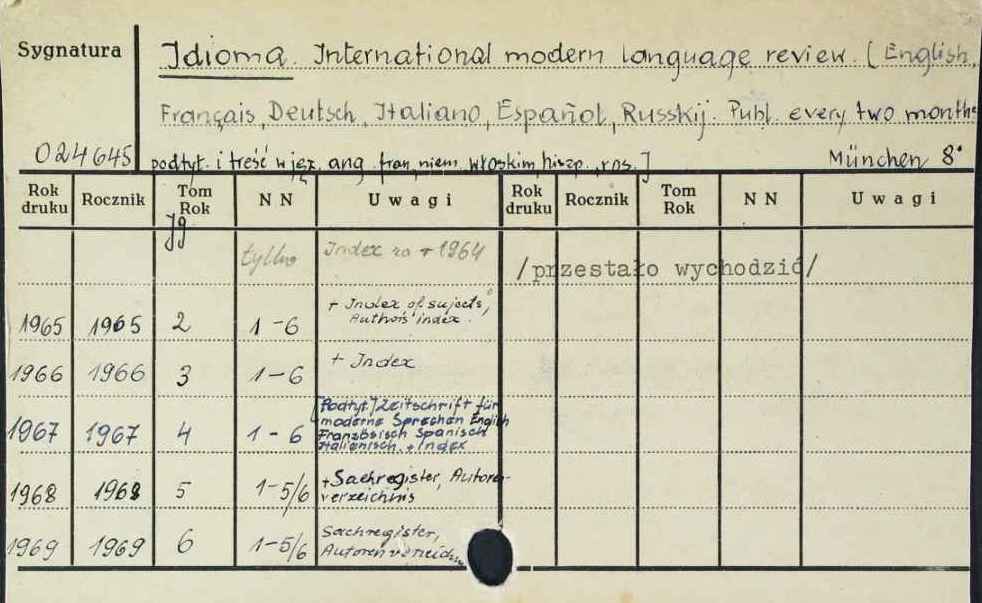 Sygnatura
Idioma. International modern language review. [English,
Français, Deutsch, Italiano, Español, Russkij. Publ. every two months
024645 podtyt. i treść w jęz. ang. fran, niem. włoskim, hiszp., ros.] München 8°
Rok druku Rocznik Tom Rok NN Uwagi Rok druku Rocznik Tom Rok NN Uwagi
Jg
tylko Index za r 1964 /przestało wychodzić/
1965 1965 2 1-6 + Index of sujects,
Authors index.
1966 1966 3 1-6 + Index
1967 1967 4 1-6 [Podtyt.] Zeitschrift für
moderne Sprachen Englich
Französisch Spanisch
Italienisch. + Index
1968 1968 5 1-5/6 + Sachregister, Autoren-
verzeichnis
1969 1969 6 1-5/6 Sachregister,
Autoren